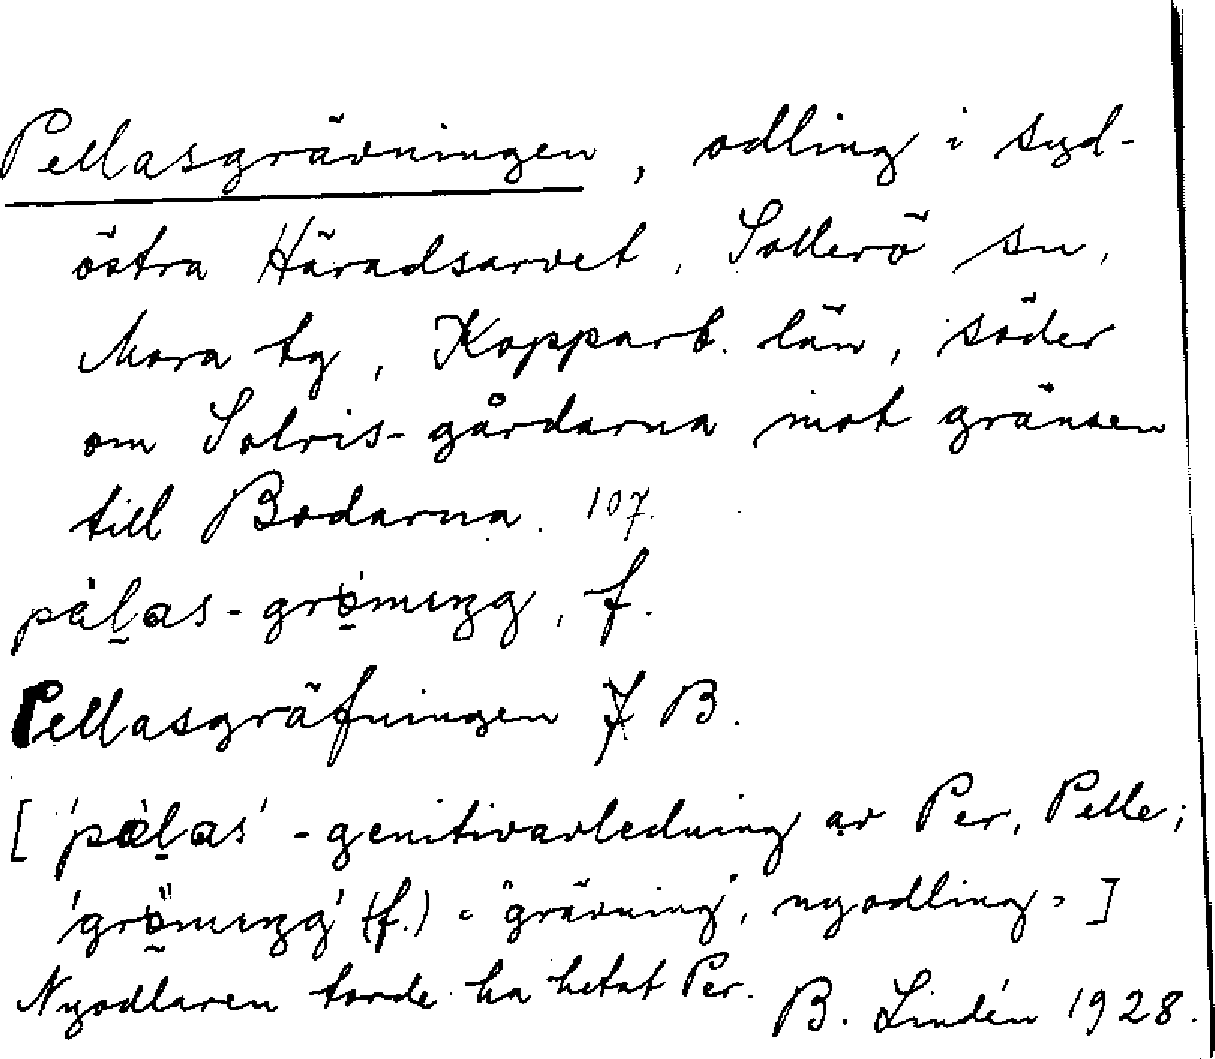 Pellasgrävningen, odling i syd-
östra Häradsarvet, Sollerö sn,
Mora tg, Kopparb. län, söder
om Solris-gårdarna mot gränsen
till Bodarna. 107.
pàl̯as-grö̀mıŋg, f.
Pellasgräfningen B.
['pàl̯as' - genitivavledning av Per, Pelle;
'grö̀mıŋg' (f.) = 'grävning', nyodling.]
Nyodlaren torde ha hetat Per.
B. Lindén 1928.